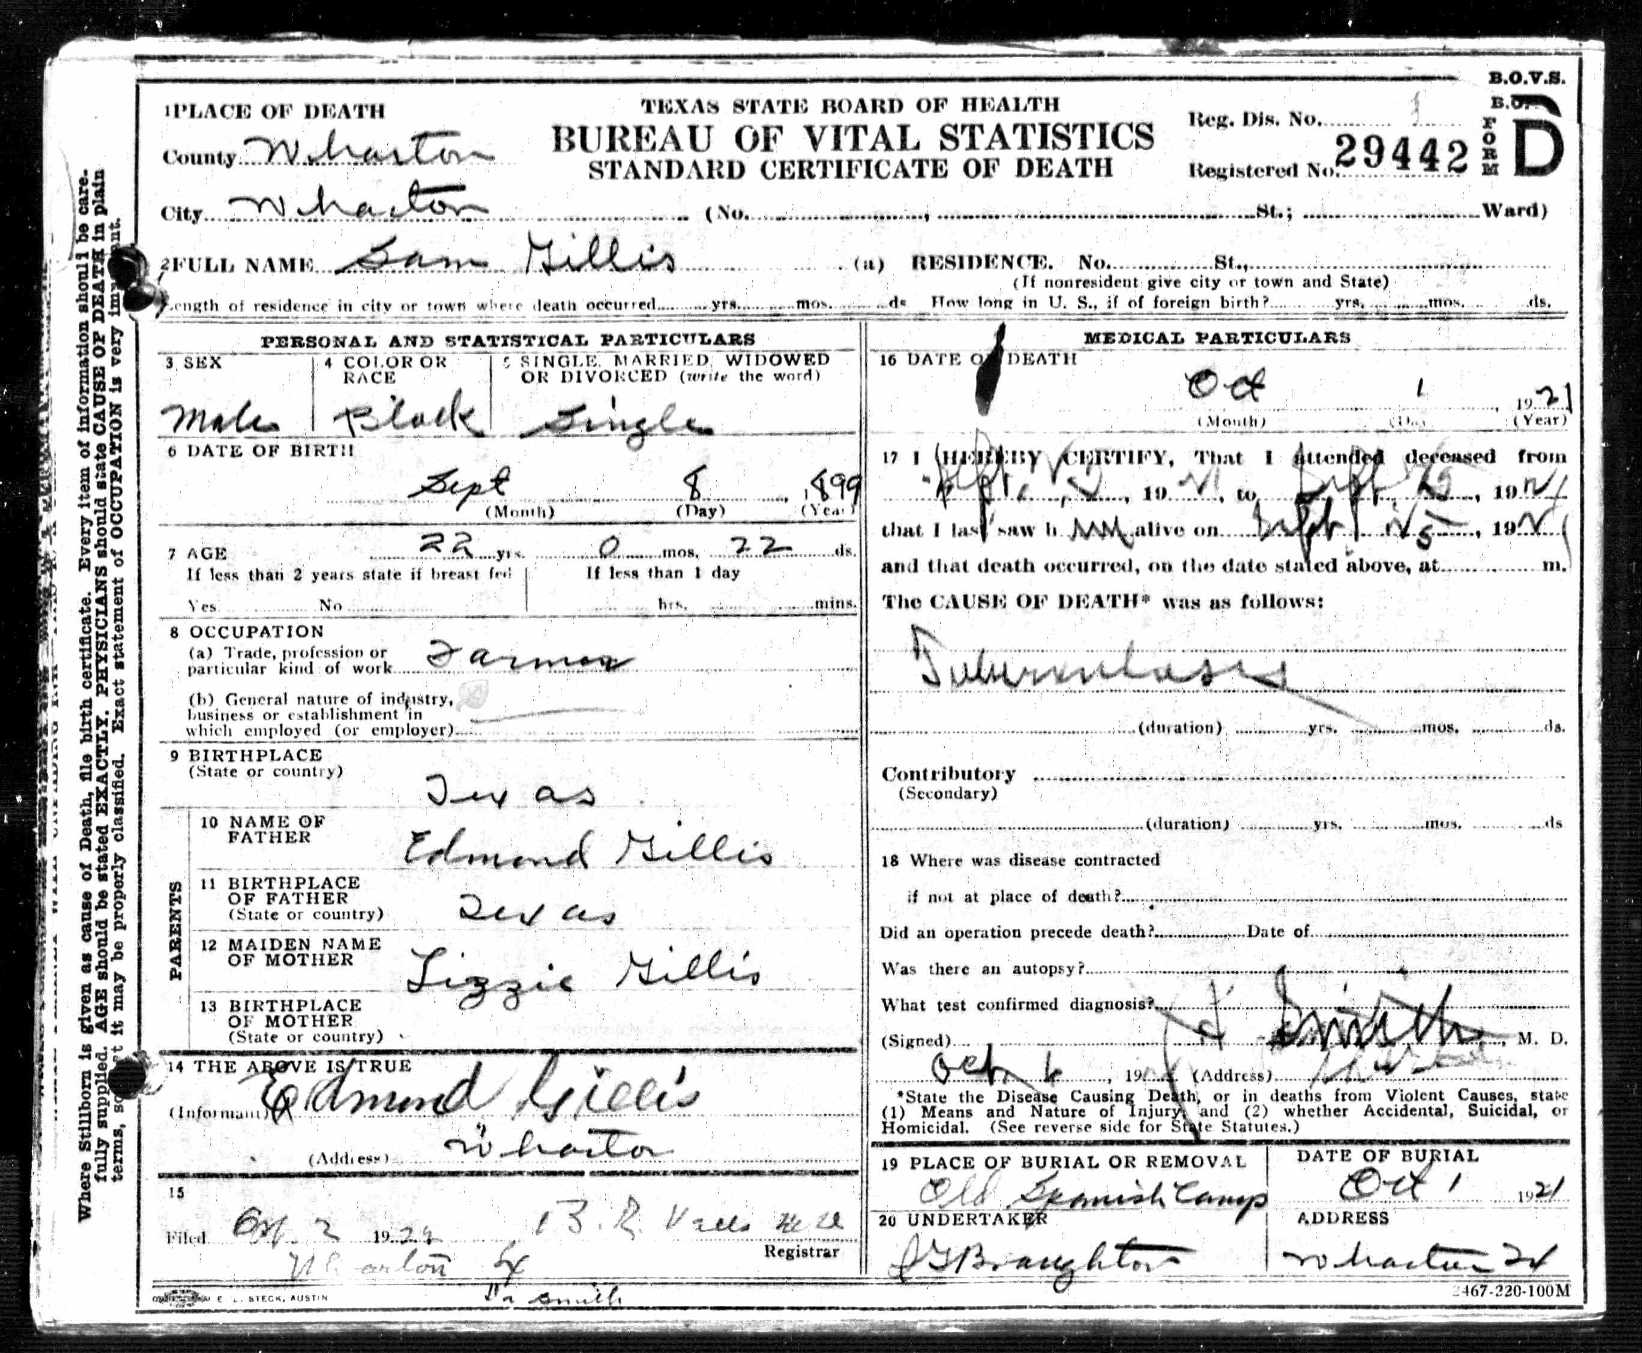 B.O.V.S.
TEXAS STATE BOARD OF HEALTH
BUREAU OF VITAL STATISTICS
STANDARD CERTIFICATE OF DEATH
Reg. Dis. No. 1
Registered No. 29442
FORM D
1 PLACE OF DEATH
County Wharton
City Wharton (No. , St.; Ward)
2 FULL NAME Sam Gillis (a) RESIDENCE. No. St.,
(If nonresident give city or town and State)
Length of residence in city or town where death occurred yrs. mos. ds How long in U. S., if of foreign birth? yrs. mos. ds.
PERSONAL AND STATISTICAL PARTICULARS
3 SEX
Male
4 COLOR OR RACE
Black
5 SINGLE, MARRIED, WIDOWED
OR DIVORCED (write the word)
Single
6 DATE OF BIRTH
Sept 8, 1899
(Month) (Day) (Year)
7 AGE 22 yrs. 0 mos. 22 ds.
If less than 2 years state if breast fed
Yes No
If less than 1 day
hrs. mins.
8 OCCUPATION
(a) Trade, profession or
particular kind of work Farmer
(b) General nature of industry,
business or establishment in
which employed (or employer)
9 BIRTHPLACE
(State or country)
Texas
PARENTS
10 NAME OF
FATHER
Edmond Gillis
11 BIRTHPLACE
OF FATHER
(State or country)
Texas
12 MAIDEN NAME
OF MOTHER
Lizzie Gillis
13 BIRTHPLACE
OF MOTHER
(State or country)
14 THE ABOVE IS TRUE
(Informant) Edmond Gillis
(Address) Wharton
15
Filed 2 19
Registrar
Wharton Tx
E. L. STECK, AUSTIN
Dr Smith
MEDICAL PARTICULARS
16 DATE OF DEATH
Oct 1, 1921
(Month) (Day) (Year)
17 I HEREBY CERTIFY, That I attended deceased from
Sept. , 1921, to Sept 25, 1921
that I last saw him alive on Sept 25, 1921
and that death occurred, on the date stated above, at m.
The CAUSE OF DEATH* was as follows:
Tuberculosis
(duration) yrs. mos. ds.
Contributory
(Secondary)
(duration) yrs. mos. ds
18 Where was disease contracted
if not at place of death?
Did an operation precede death? Date of
Was there an autopsy?
What test confirmed diagnosis?
(Signed) Smith, M. D.
Oct 6, 19 (Address)
*State the Disease Causing Death, or in deaths from Violent Causes, state
(1) Means and Nature of Injury and (2) whether Accidental, Suicidal, or
Homicidal. (See reverse side for State Statutes.)
19 PLACE OF BURIAL OR REMOVAL
Old Spanish Camp
DATE OF BURIAL
Oct 1 1921
20 UNDERTAKER
J G Braughton
ADDRESS
Wharton Tx
2467-220-100M
Where Stillborn is given as cause of Death, file birth certificate. Every item of information should be care-
fully supplied. AGE should be stated EXACTLY. PHYSICIANS should state CAUSE OF DEATH in plain
terms, so that it may be properly classified. Exact statement of OCCUPATION is very important.